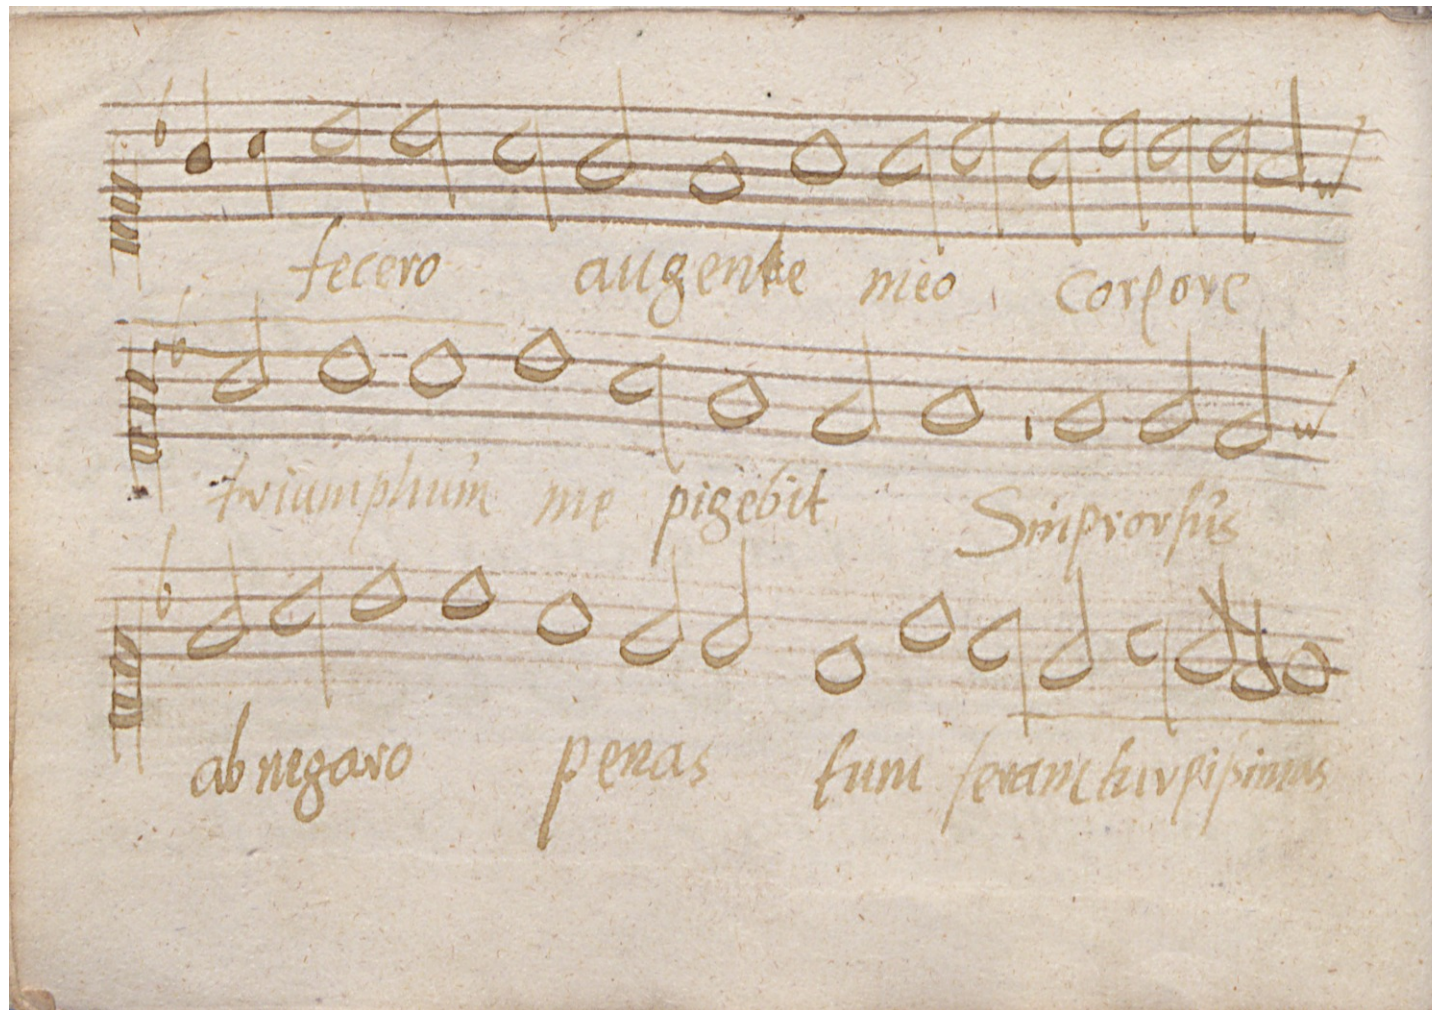 fecero augente meo corpore
triumphum me pigebit Sinprorsus
abnegaro penas tum feram turpissimas